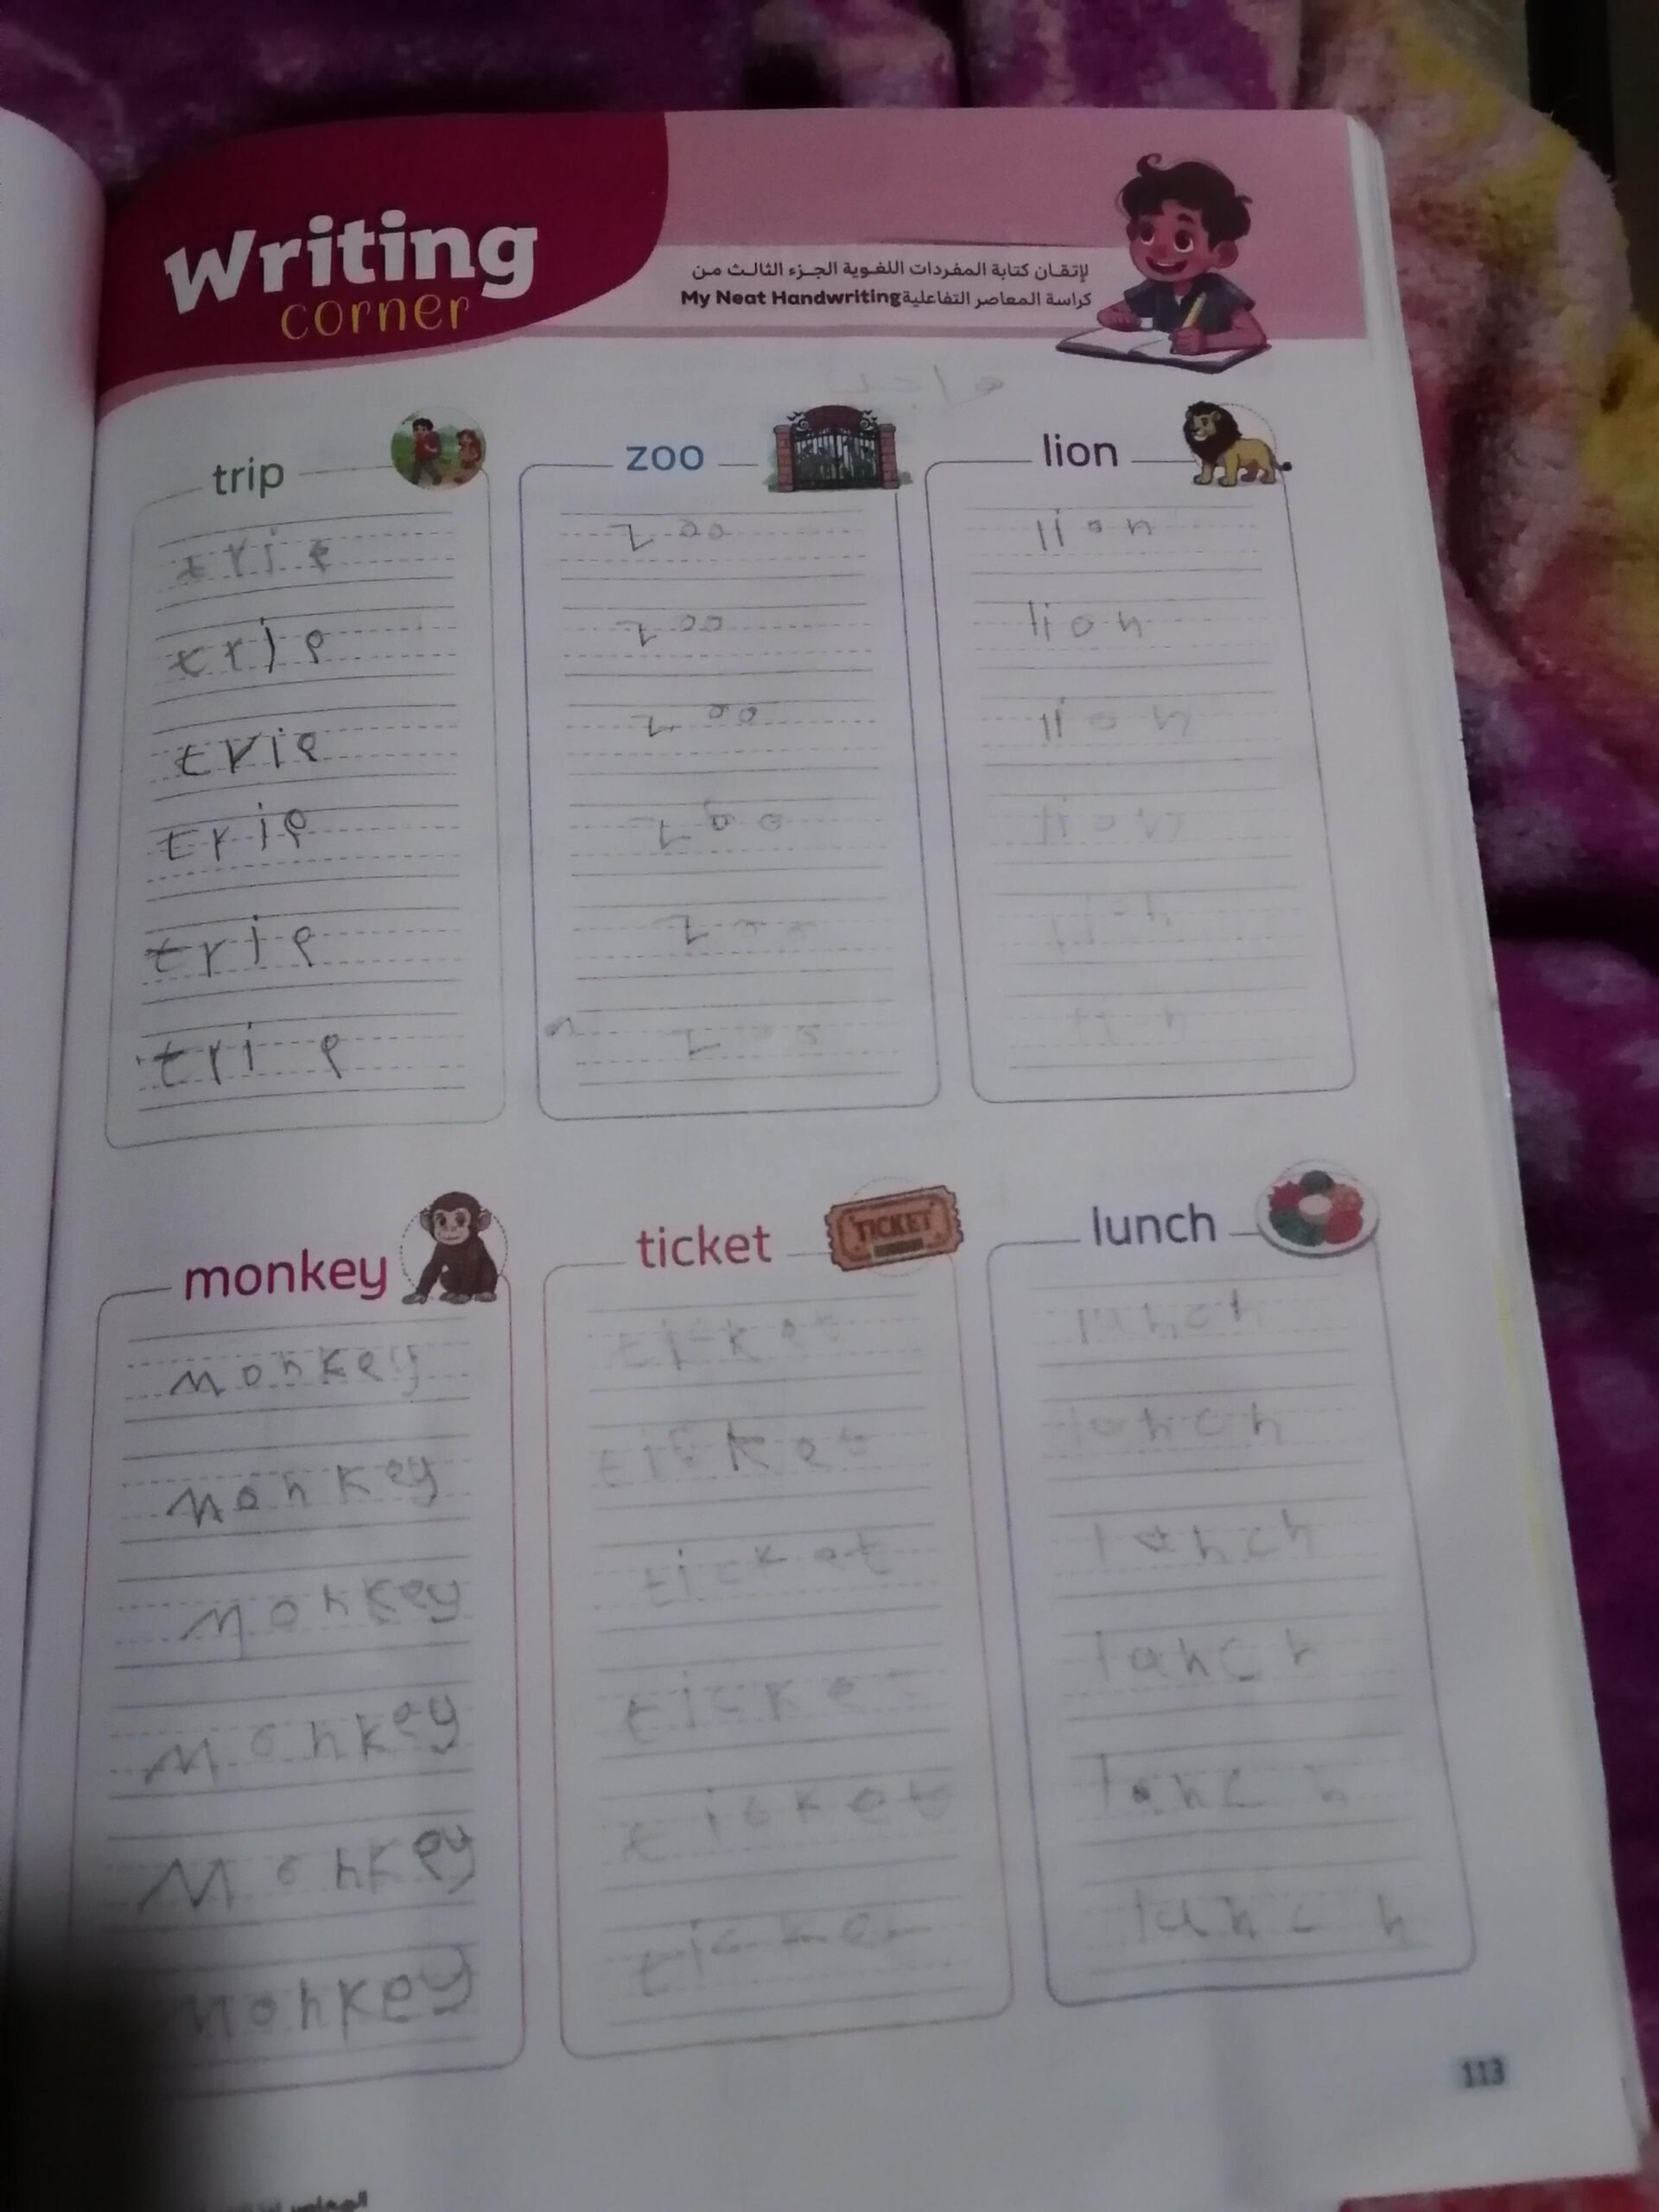 Writing
corner
لإتقان كتابة المفردات اللغوية الجزء الثالث من
كراسة المعاصر التفاعلية My Neat Handwriting
واجب
trip
trip
trip
trip
trip
trip
trip
zoo
zoo
zoo
zoo
zoo
zoo
zoo
lion
lion
lion
lion
lion
lion
lion
monkey
monkey
monkey
monkey
monkey
monkey
monkey
ticket
TICKET
ticket
ticket
ticket
ticket
ticket
ticket
lunch
lunch
lanch
lanch
lanch
lanch
lunch
113